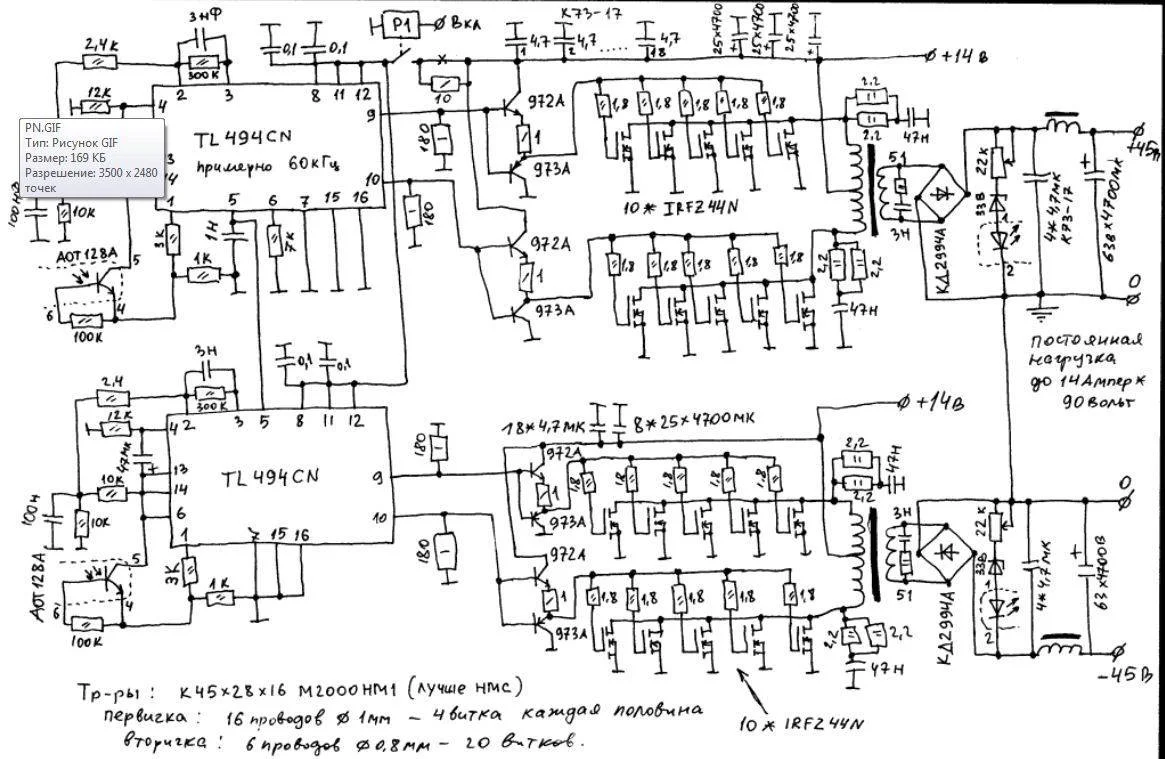 3НФ
2,4К
300К
0,1
0,1
P1
Вкл
К73-17
4,7
1
4,7
2
.....
4,7
18
25х4700
25х4700
25х4700
+14В
12К
4
2
3
8
11
12
9
10
TL494CN
примерно 60кГц
PN.GIF
Тип: Рисунок GIF
Размер: 169 КБ
Разрешение: 3500 x 2480
точек
3
14
1
5
6
7
15
16
10
180
180
972А
1
973А
972А
1
973А
1,8
1,8
1,8
1,8
1,8
10*IRFZ44N
1,8
1,8
1,8
1,8
1,8
2,2
2,2
47Н
51
3Н
2,2
2,2
47Н
КД2994А
22К
33В
1
2
4*4,7МК
К73-17
63В*4700МК
+45В
0
10К
3К
1Н
1К
7К
АОТ128А
5
4
6
100К
постоянная
нагрузка
до 14Ампер ж
90 вольт
2,4
3Н
300К
0,1
0,1
12К
4
2
3
5
8
11
12
47МК
13
14
6
10К
10К
100Н
TL494CN
9
10
1
7
15
16
3К
1К
АОТ128А
5
4
6
100К
180
180
18*4,7МК
8*25х4700МК
+14В
972А
1
973А
972А
1
973А
1,8
1,8
1,8
1,8
1,8
1,8
1,8
1,8
1,8
1,8
2,2
2,2
47Н
3Н
51
2,2
2,2
47Н
КД2994А
22К
33В
1
2
4*4,7МК
63х4700В
0
-45В
10*IRFZ44N
Тр-ры: К45х28х16 М2000НМ1 (лучше НМС)
первичка: 16 проводов ø 1мм – 4 витка каждая половина
вторичка: 6 проводов ø0,8мм – 20 витков.